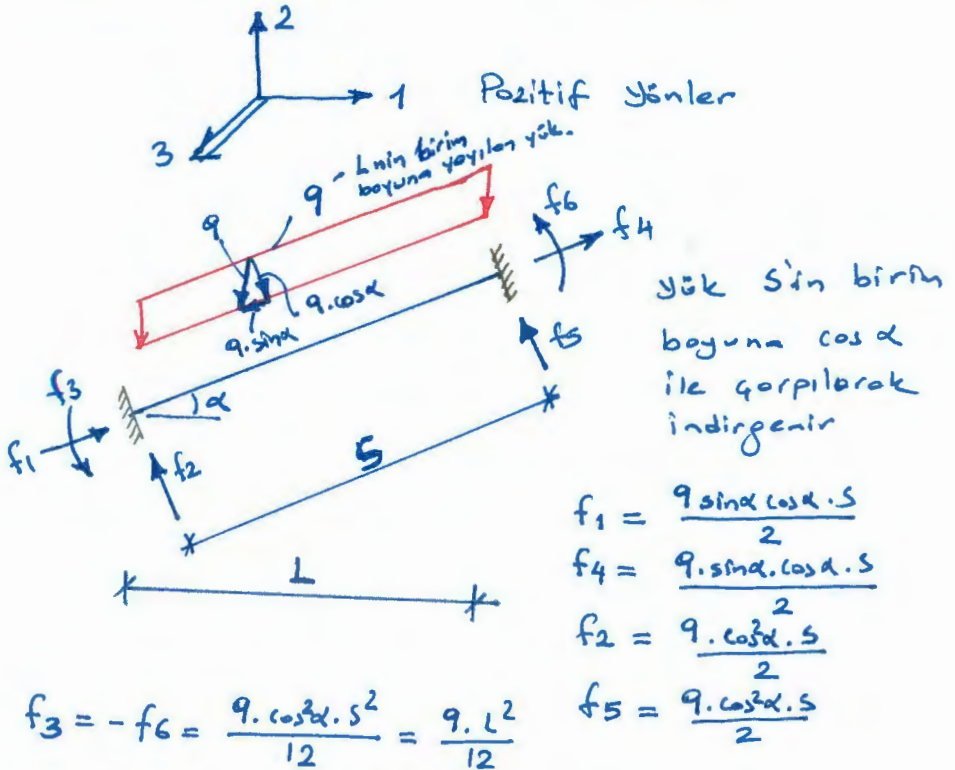 2
1 Pozitif yönler
3
q - L nin birim
boyuna yayılan yük.
q
q.cosα
q.sinα
f6
f4
f5
yük S'in birim
boyuna cos α
ile çarpılarak
indirgenir
f3
α
f1
f2
S
L
f1 = q sinα cosα.S / 2
f4 = q.sinα.cosα.S / 2
f2 = q.cos²α.S / 2
f5 = q.cos²α.S / 2
f3 = -f6 = q.cos²α.S² / 12 = q.L² / 12